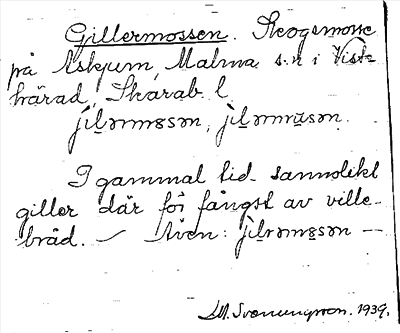 Gillermossen. Skogsmosse
på Askjum, Malma s:n i Viste
härad, Skarab. l.
jil̤əmmɵsən, jil̤əmmɵsən.
I gammal tid sannolikt
giller där för fångst av ville-
bråd. — Även: jil̤rəmɵsən —
M. Svenungsson. 1939.